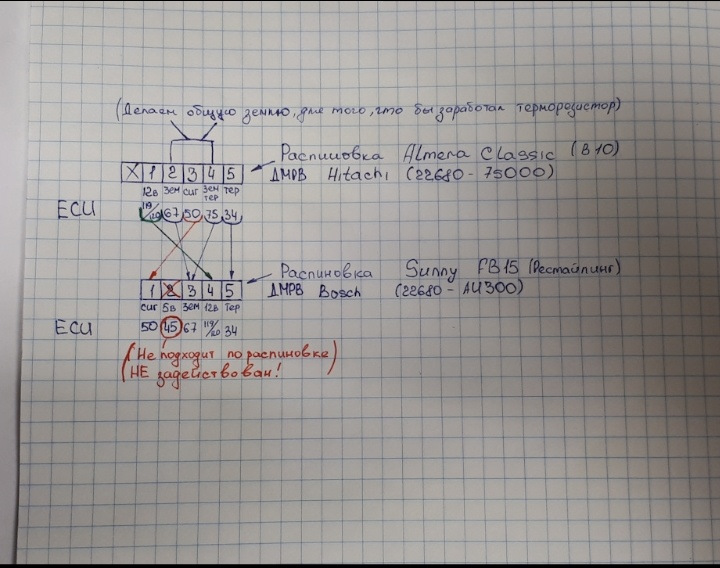 (Делаем общую землю, для того, что бы заработал терморезистор)
Распиновка Almera Classic (B10)
X 1 2 3 4 5
ДМРВ Hitachi (22680-75000)
12в зем сиг зем тер тер
ECU 119/120 67 50 75 34
Распиновка Sunny FB15 (Рестайлинг)
1 2 3 4 5
ДМРВ Bosch (22680-AU300)
сиг 5в зем 12в тер
ECU 50 45 67 119/20 34
(Не подходит по распиновке)
(НЕ задействован!